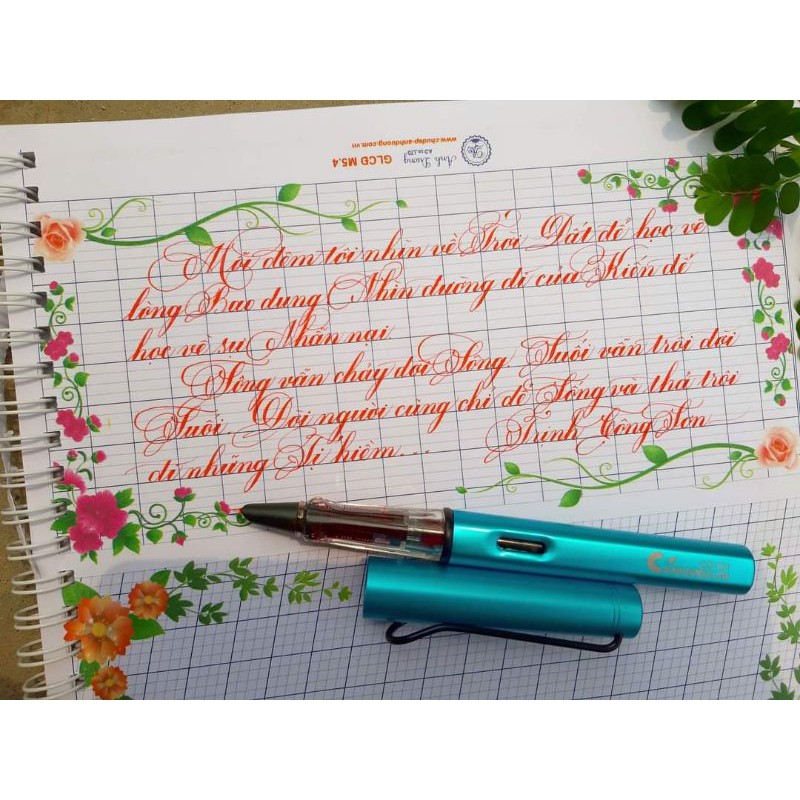 www.chudep-anhduong.com.vn
GLCĐ M5.4
Ánh Dương
Mỗi đêm tôi nhìn về Trời Đất để học về
lòng Bao dung. Nhìn đường đi của Kiến để
học về sự Nhẫn nại.
Sông vẫn chảy đời Sông. Suối vẫn trôi đời
Suối. Đời người cũng chỉ để Sống và thả trôi
đi những Tị hiềm...
Trịnh Công Sơn